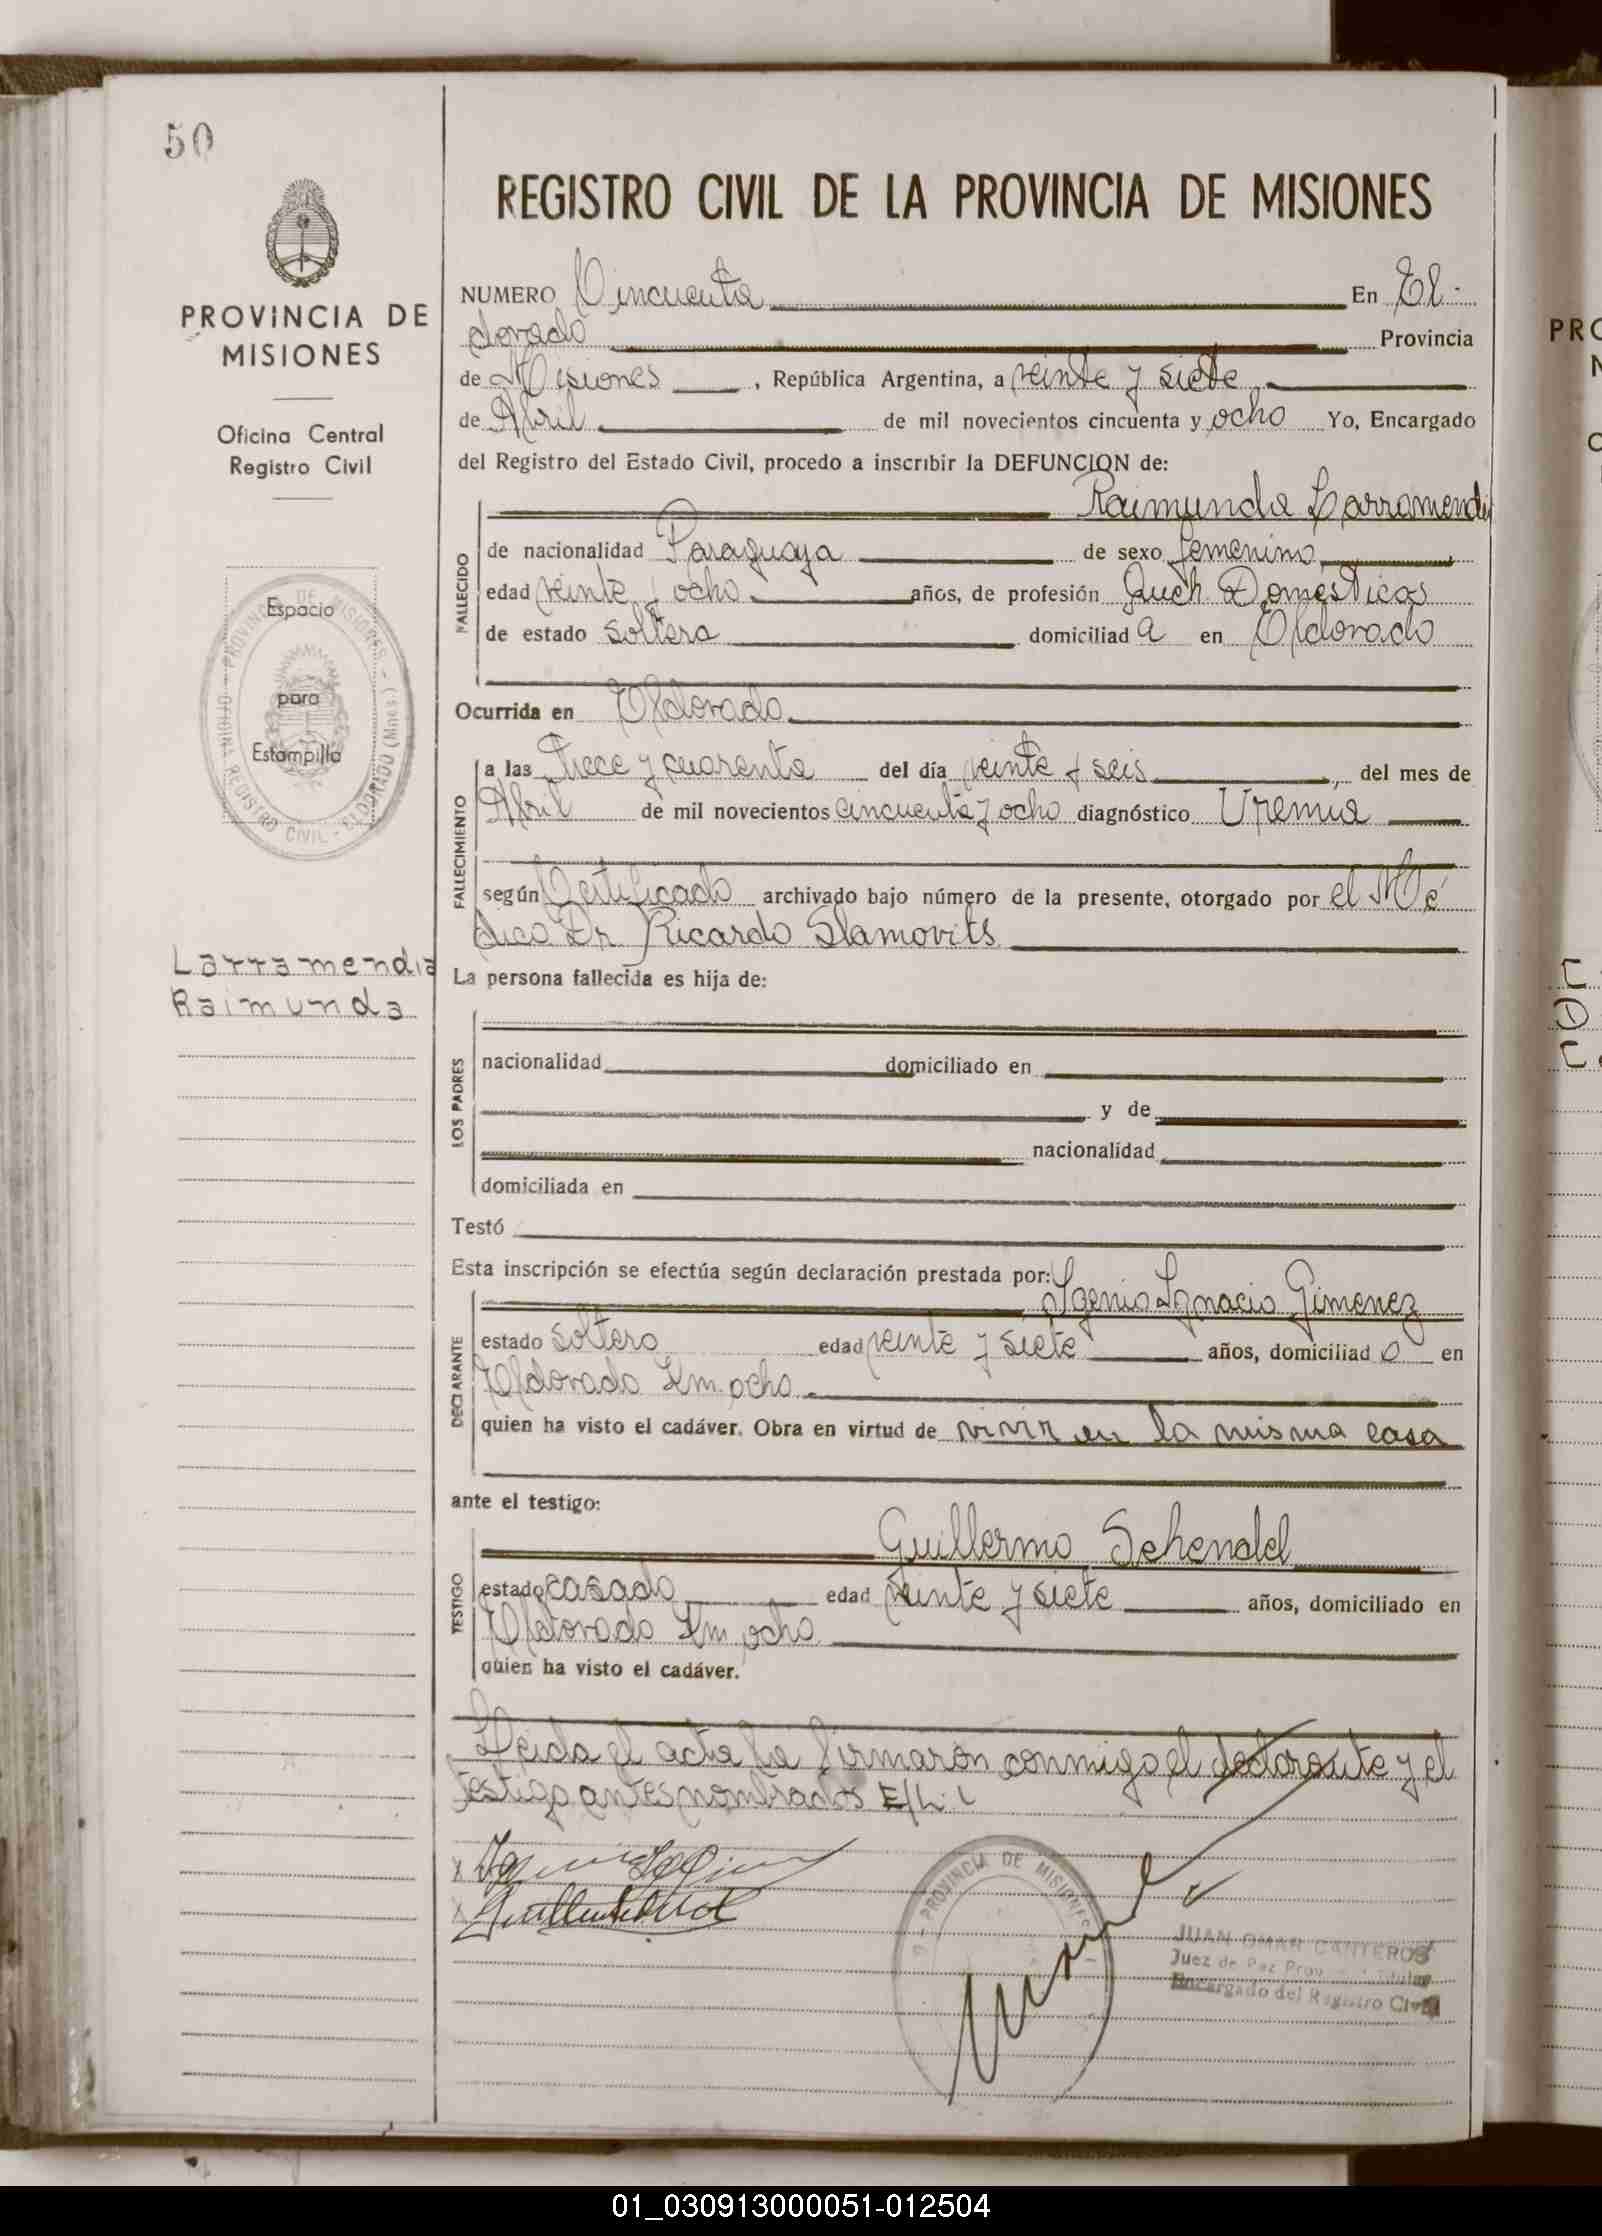 50
PROVINCIA DE
MISIONES
Oficina Central
Registro Civil
Espacio
para
Estampilla
PROVINCIA DE MISIONES
REGISTRO CIVIL - ELDORADO (Mnes.)
Larramendia
Raimunda
REGISTRO CIVIL DE LA PROVINCIA DE MISIONES
NUMERO Cincuenta En El-
dorado Provincia
de Misiones, República Argentina, a veinte y siete
de Abril de mil novecientos cincuenta y ocho Yo, Encargado
del Registro del Estado Civil, procedo a inscribir la DEFUNCION de:
Raimunda Larramendia
FALLECIDO
de nacionalidad Paraguaya de sexo femenino
edad veinte y ocho años, de profesión Queh. Domesticos
de estado soltera domiciliad a en Eldorado
Ocurrida en Eldorado
FALLECIMIENTO
a las Trece y cuarenta del día veinte y seis, del mes de
Abril de mil novecientos cincuenta y ocho diagnóstico Uremia
según Certificado archivado bajo número de la presente, otorgado por el Mé
dico Dr. Ricardo Slamovits
La persona fallecida es hija de:
LOS PADRES
nacionalidad domiciliado en
y de
nacionalidad
domiciliada en
Testó
Esta inscripción se efectúa según declaración prestada por:
Ignacio Gimenez
DECLARANTE
estado soltero edad veinte y siete años, domiciliad o en
Eldorado Km. ocho
quien ha visto el cadáver. Obra en virtud de vivir en la misma casa
ante el testigo:
Guillermo Schendel
TESTIGO
estado casado edad veinte y siete años, domiciliado en
Eldorado Km ocho
quien ha visto el cadáver.
Leida el acta la firmaron conmigo el declarante y el
testigo antes nombrados E/L. L
PROVINCIA DE MISIONES
JUAN OMAR CANTEROS
Juez de Paz Titular
Encargado del Registro Civil
PRO
01_030913000051-012504